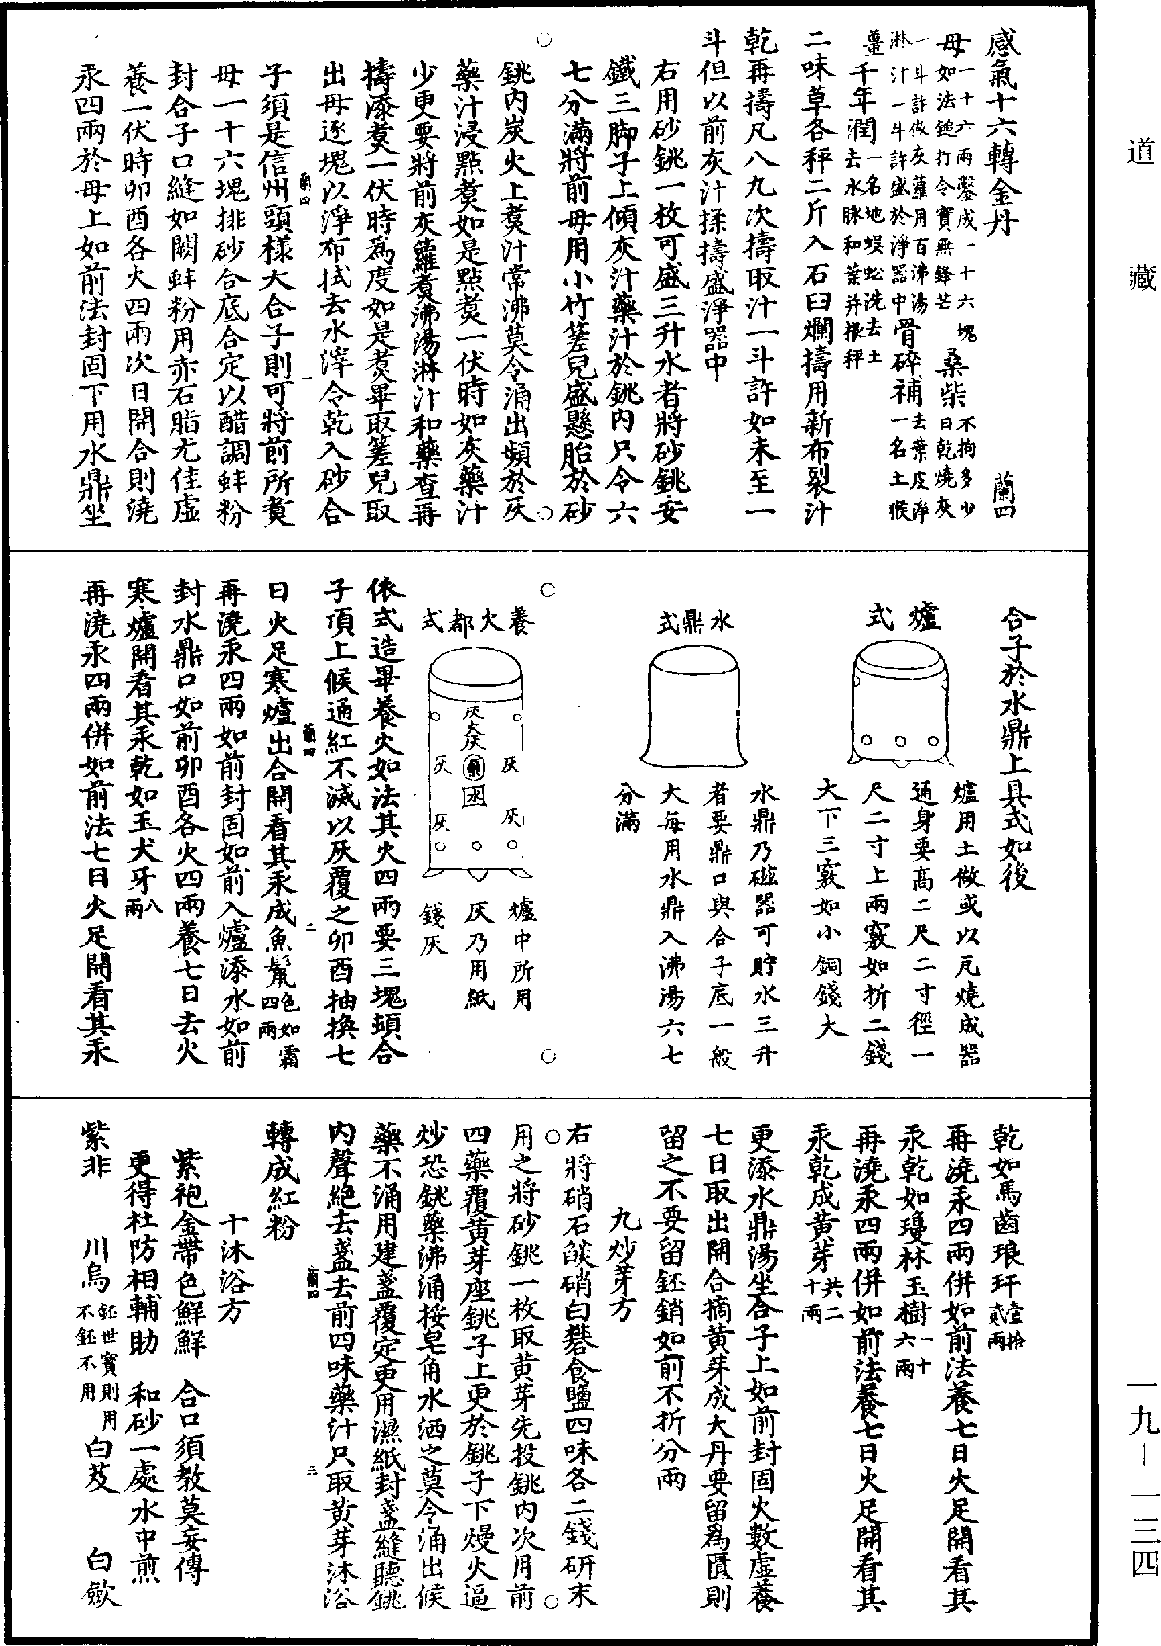 道藏
感氣十六轉金丹 蘭四
母一十六兩鏨成一十六塊
母如法鎚打令寶無鋒芒 桑柴不拘多少日乾燒灰
一斗許做灰蘿用百沸湯淋汁一斗許盛於淨器中 骨碎補一名土猴薑去葉皮淨
千年潤一名地蜈蚣洗去土去水脉和葉并根秤
二味草各秤二斤入石臼爛擣用新布裂汁
乾再擣凡八九次擣取汁一斗許如未至一
斗但以前灰汁揉擣盛淨器中
右用砂銚一枚可盛三升水者將砂銚安
鐵三脚子上傾灰汁藥汁於銚內只令六
七分滿將前母用小竹䇹兒盛懸胎於砂
銚內炭火上煑汁常沸莫令涌出頻於灰
藥汁浸點煑如是點煑一伏時如灰藥汁
少更要將前灰蘿煑沸湯淋汁和藥查再
擣添煑一伏時為度如是煑畢取䇹兒取
出母逐塊以淨布拭去水滓令乾入砂合
子須是信州頭樣大合子則可將前所煑
母一十六塊排砂合底合定以醋調蚌粉
封合子口縫如闕蚌粉用赤石脂尤佳虛
養一伏時卯酉各火四兩次日開合則澆
汞四兩於母上如前法封固下用水鼎坐
合子於水鼎上具式如後
爐式
爐用土做或以瓦燒成器
通身要高二尺二寸徑一
尺二寸上兩竅如折二錢
大下三竅如小銅錢大
水鼎式
水鼎乃磁器可貯水三升
者要鼎口與合子底一般
大每用水鼎入沸湯六七
分滿
養火都式
灰火灰
灰 灰
灰 灰
爐中所用
灰乃用紙
錢灰
依式造畢養火如法其火四兩要三塊頭合
子頂上候通紅不滅以灰覆之卯酉抽換七
日火足寒爐出合開看其汞成魚鬣色如霜四兩
再澆汞四兩如前封固如前入爐添水如前
封水鼎口如前卯酉各火四兩養七日去火
寒爐開看其汞乾如玉犬牙八兩
再澆汞四兩併如前法七日火足開看其汞
乾如馬齒琅玕壹拾貳兩
再澆汞四兩併如前法養七日火足開看其
汞乾如瓊林玉樹一十六兩
再澆汞四兩併如前法養七日火足開看其
汞乾成黃芽共二十兩
更添水鼎湯坐合子上如前封固火數虛養
七日取出開合摘黃芽成大丹要留為匱則
留之不要留鉟銷如前不折分兩
九炒芽方
右將硝石燄硝白礬食鹽四味各二錢研末
用之將砂銚一枚取黃芽先投銚內次用前
四藥覆黃芽座銚子上更於銚子下熳火逼
炒恐銚藥沸涌挼皂角水洒之莫令涌出候
藥不涌用建盞覆定更用濕紙封盞縫聽銚
內聲絕去盞去前四味藥汁只取黃芽沐浴
轉成紅粉
十沐浴方
紫袍金帶色鮮鮮 合口須教莫妄傳
更得杜防相輔助 和砂一處水中煎
紫菲 川烏鉟世寶則用不鉟不用 白芨 白歛
一九—一三四